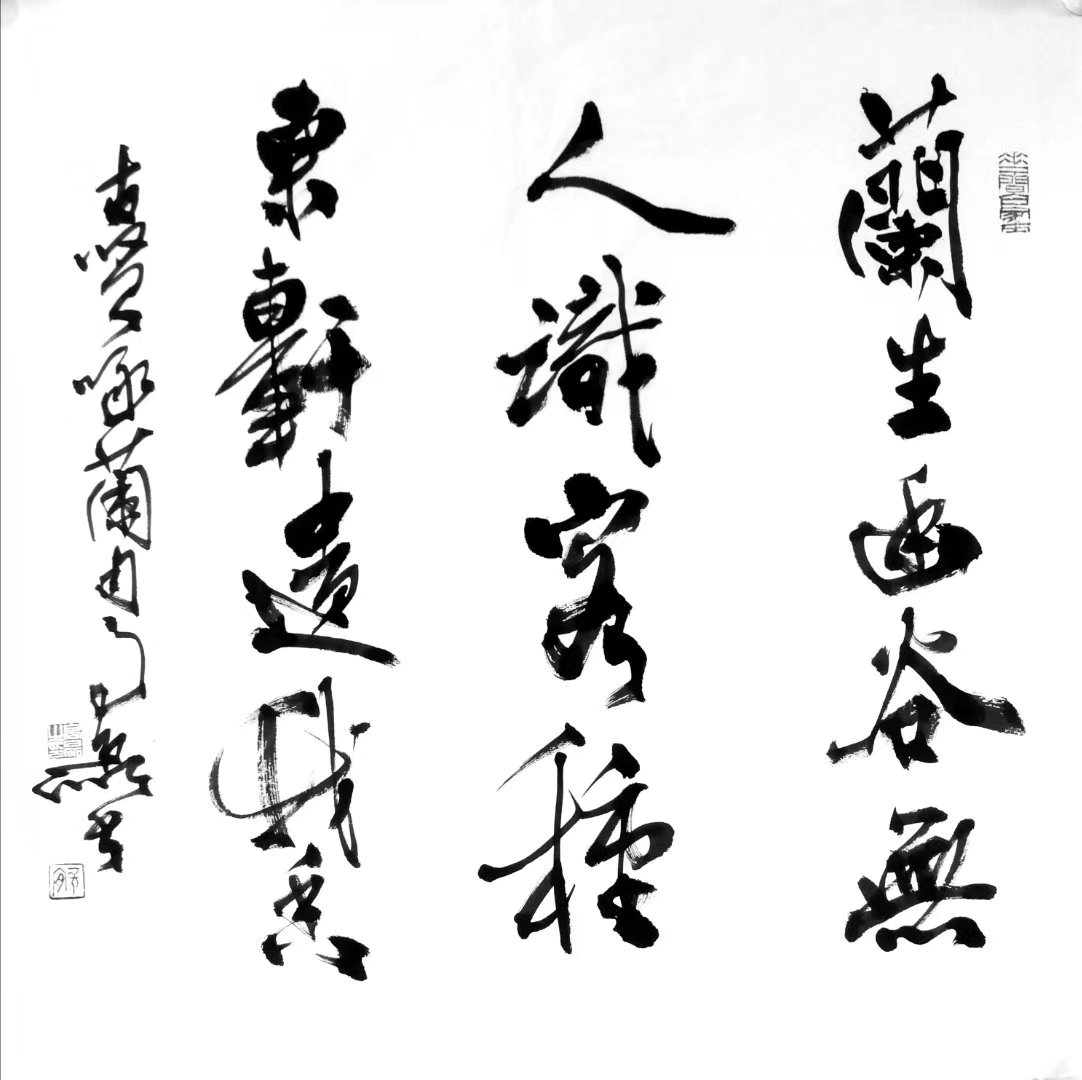 蘭生幽谷無
人識客種
東軒遺我香
古賢咏蘭句